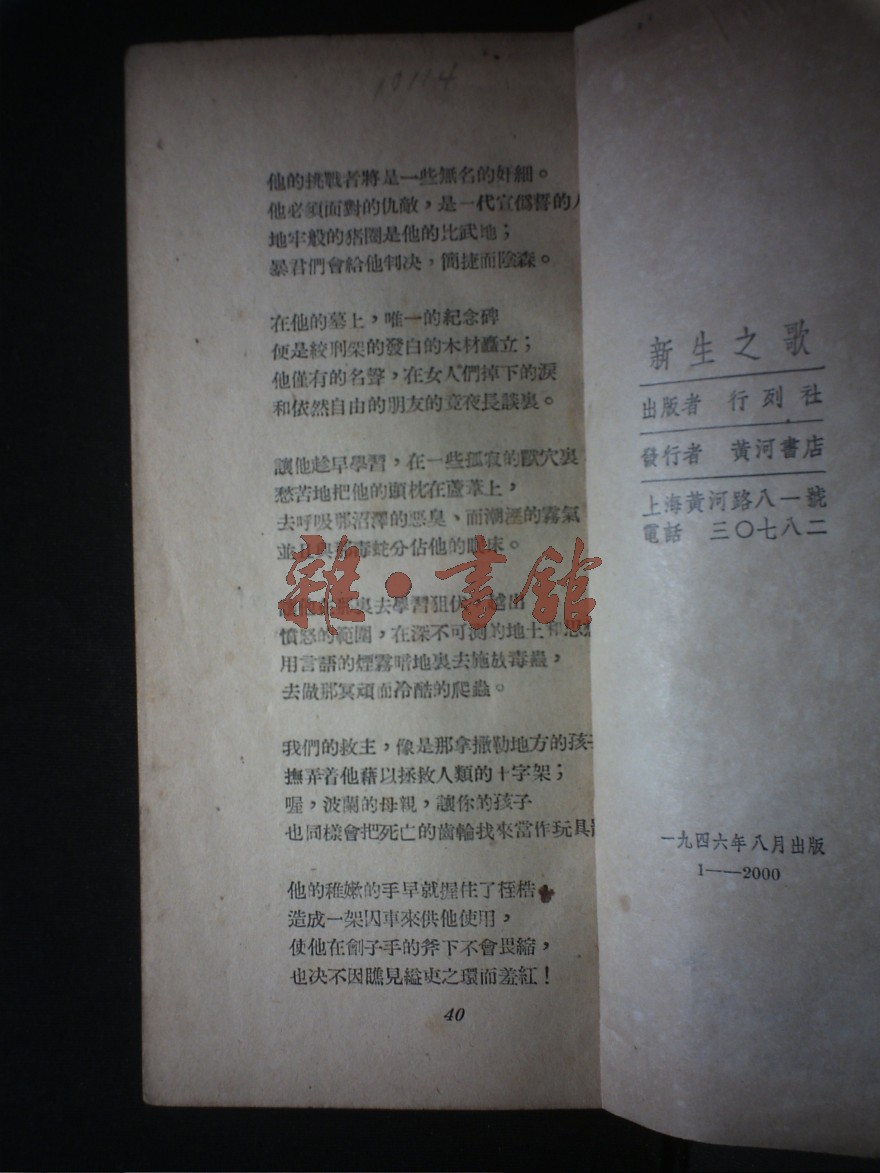 10114
他的挑戰者將是一些無名的奸細。
他必須面對的仇敵，是一代宣僞誓的人
地牢般的猪圈是他的比武地；
暴君們會給他判决，簡捷而陰森。
在他的墓上，唯一的紀念碑
便是絞刑架的發白的木材矗立；
他僅有的名聲，在女人們掉下的淚
和依然自由的朋友的竟夜長談裏。
讓他趁早學習，在一些孤寂的獸穴裏
愁苦地把他的頭枕在蘆葦上，
去呼吸那沼澤的惡臭、而潮溼的霧氣
並且與那毒蛇分佔他的眠床。
裏去學習狙伏，越出
憤怒的範圍，在深不可測的地土和思
用言語的煙霧暗地裏去施放毒蟲，
去做那冥頑而冷酷的爬蟲。
我們的救主，像是那拿撒勒地方的孩子
撫弄着他藉以拯救人類的十字架；
喔，波蘭的母親，讓你的孩子
也同樣會把死亡的齒輪找來當作玩具
他的稚嫩的手早就握住了桎梏
造成一架囚車來供他使用，
使他在劊子手的斧下不會畏縮，
也决不因瞧見縊束之環而羞紅！
40
新生之歌
出版者 行列社
發行者 黃河書店
上海黃河路八一號
電話 三〇七八二
一九四六年八月出版
1——2000
雜·書館